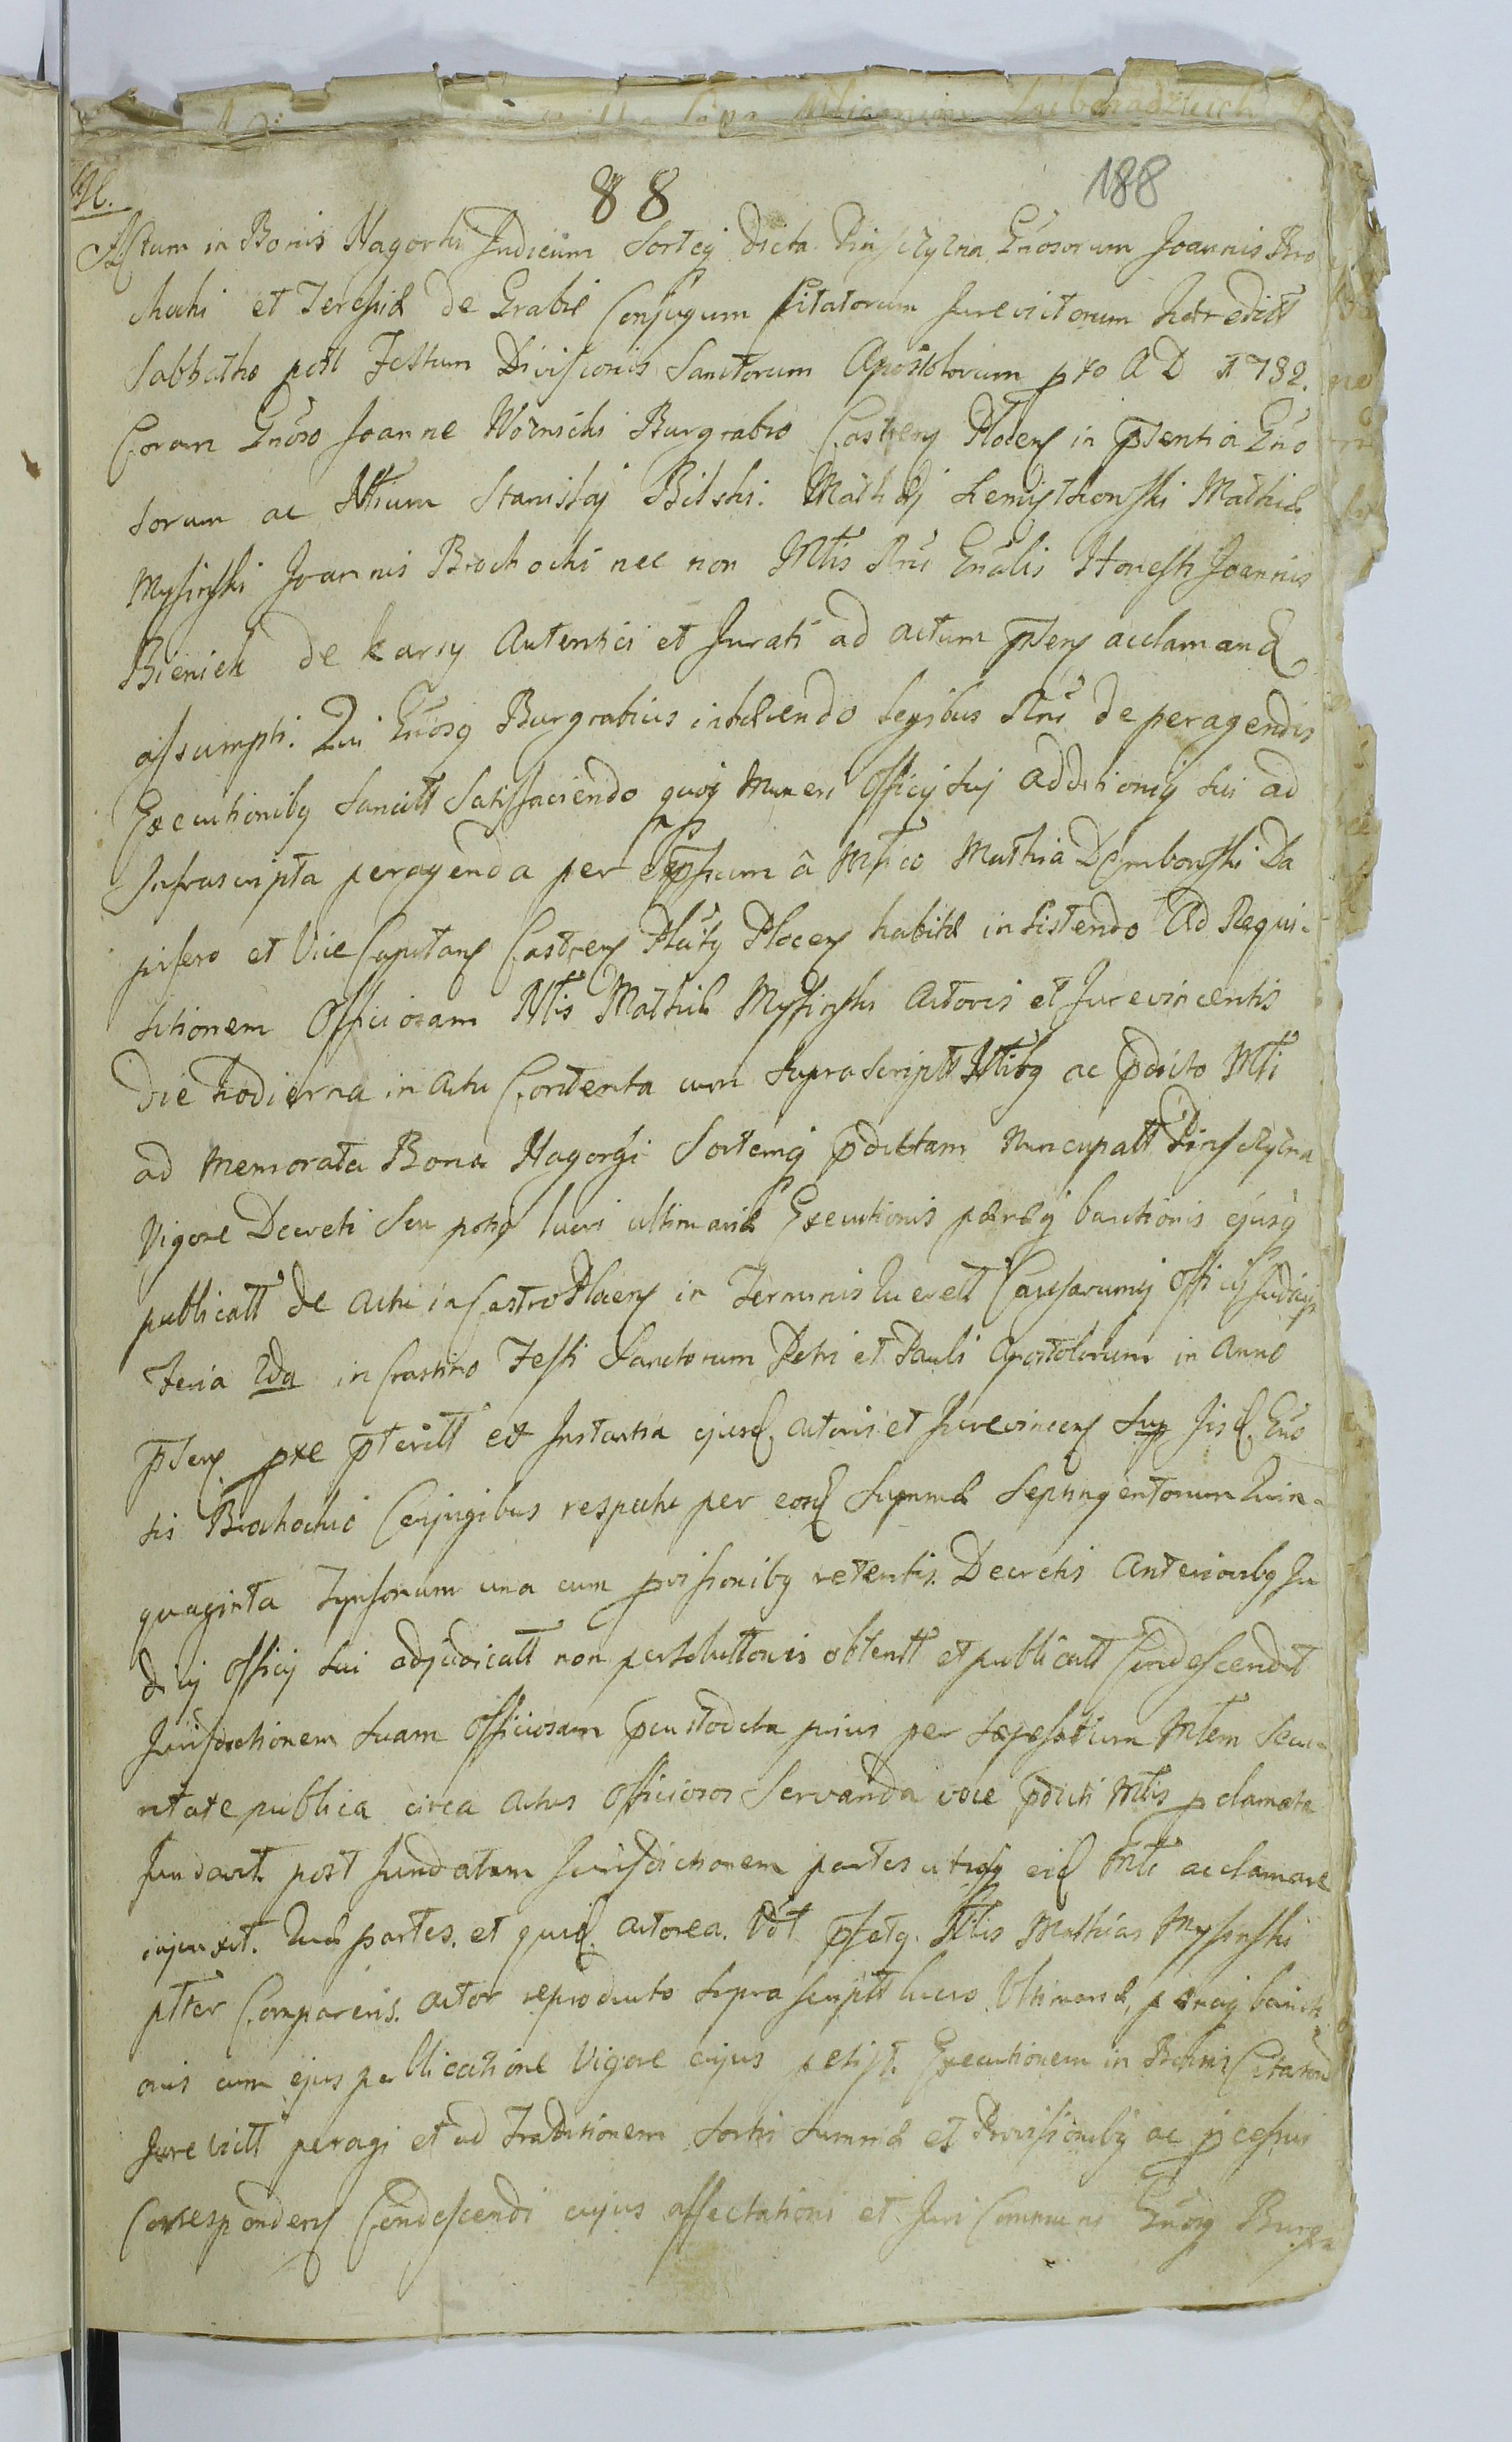 88
188
Actum in Bonis Nagorki Judicium Sortej dicta Pinsczyzna Gnosorum Joannis Bro
chocki et Teressiæ de Grabie Conjugum Citatorum Jurevictorum Hæreditt
Sabbatho post Festum Divisionis Sanctorum Apostolorum pro A D 1782.
Coram Gnoso Joanne Woznicki Burgrabio Castren Plocen in Pntentia Gno
sorum ac Nlium Stanislaj Bilski. Mathiæ
Mysinski Joannis Brochocki nec non Mtis Rni Gnalis Honesti Joannis
Bieniek de Karsy Autentici et Jurati ad actum Pnten acclamand
assumpti. Qui Gnosq Burgrabius inhærendo legibus Rni de peragendis
Executionibq Sancitt Satisfaciendo quoq Muneri Officij Suj additioniq Sui ad
Infrascripta peragenda per a Mfico Mathia Dembowski Da
pifero et Vice Capitan Castren Plocen habitæ insistendo Ad Requi-
sitionem Officiosam Nlis Mathiæ Mysinski Actoris et Jurevincentis
die hodierna in Actu Contenta cum Suprascriptt Nlibq ac pdicto Mti
ad memorata Bona Nagorki Sortemq pdictam Nuncupatt Pinsczyzna
Vigore Decreti Seu potiq lucri ultimariæ Executionis pænæq bannitionis ejusq
publicatt de Actu in Castro Plocen in Terminis Querell Causarumq Officij Judicij
Feria 2da in Crastino Festi Sanctorum Petri et Pauli Apostolorum in Anno
Pnten pxe pteritt ex Instantia ejusd. actoris et Jurevincen Sup Jisd. Gno
sis Brochockie Conjugibus respectu per eosd Summæ Septingentorum Quin-
quaginta Tynforum una cum provisionibq retentis. Decretis Anterioribq Ju
dicij Officij Sui adjudicatt non persolutionis obtentt et publicatt Condescendit
Jurisdictionem Suam Officiosam prius per Mtem Secu-
ritate publica circa Actus Officiosos Servanda voce pdicti Mtis pclamata
fundavit. post fundatam Jurisdictionem partes utrasq eid Mti acclamare
injunxit. Quæ partes. et quid. actorea. Vdt Nlis Mathias Mysinski
pliter Comparens. actor reproducto Suprascriptt lucro Ultimariæ, pænæq banniti
onis cum ejus publicatione Vigore cujus petijt. Executionem in Bonis Citatorum
Jurevictt peragi et ad Traditionem Sortis Summæ et Provisionibq ac pcessui
Corresponden Condescendi cujus affectationi et Juri Communi Gnosq Burgra